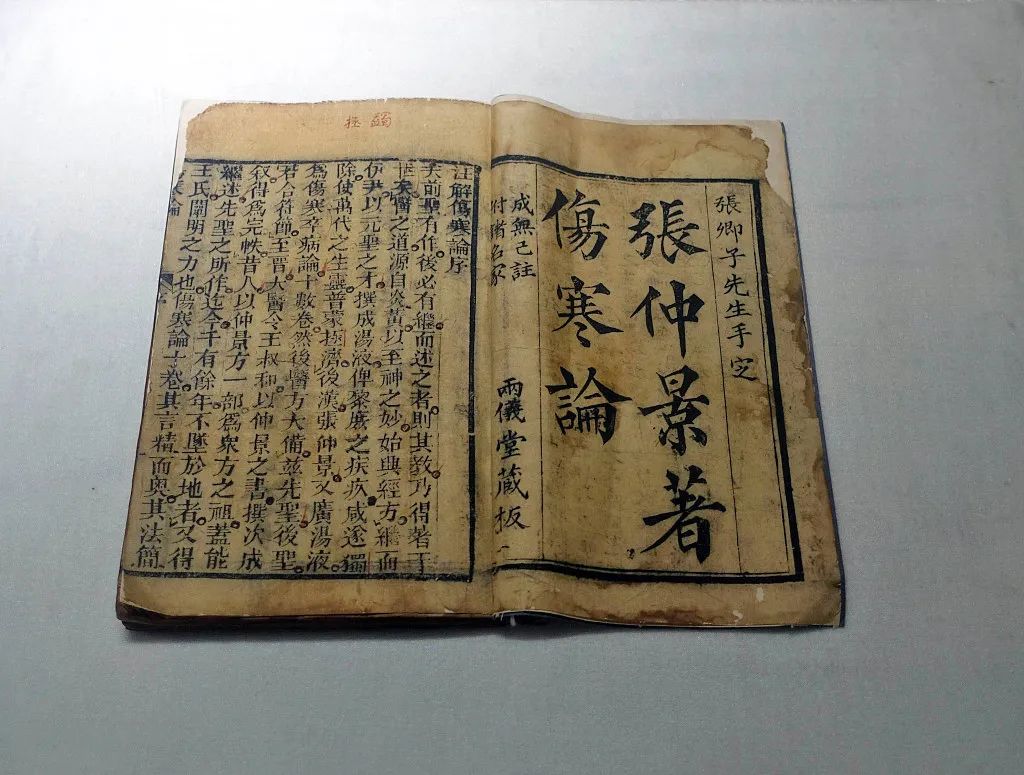 張卿子先生手定
張仲景著
傷寒論
成無己註
附諸名家
兩儀堂藏板
蠲
拯
注解傷寒論序
夫前聖有作後必有繼而述之者則其教乃得著于
世矣醫之道源自炎黃以至神之妙始興經方繼而
伊尹以元聖之才撰成湯液俾黎庶之疾疚咸遂獨
除使萬代之生靈普蒙極濟後漢張仲景又廣湯液
爲傷寒卒病論十數卷然後醫方大備兹先聖後聖
若合符節至晋大醫令王叔和以仲景之書撰次成
叙得爲完帙昔人以仲景方一部爲衆方之祖蓋能
繼述先聖之所作迄今千有餘年不墜於地者又得
王氏闡明之力也傷寒論十卷其言精而奥其法簡